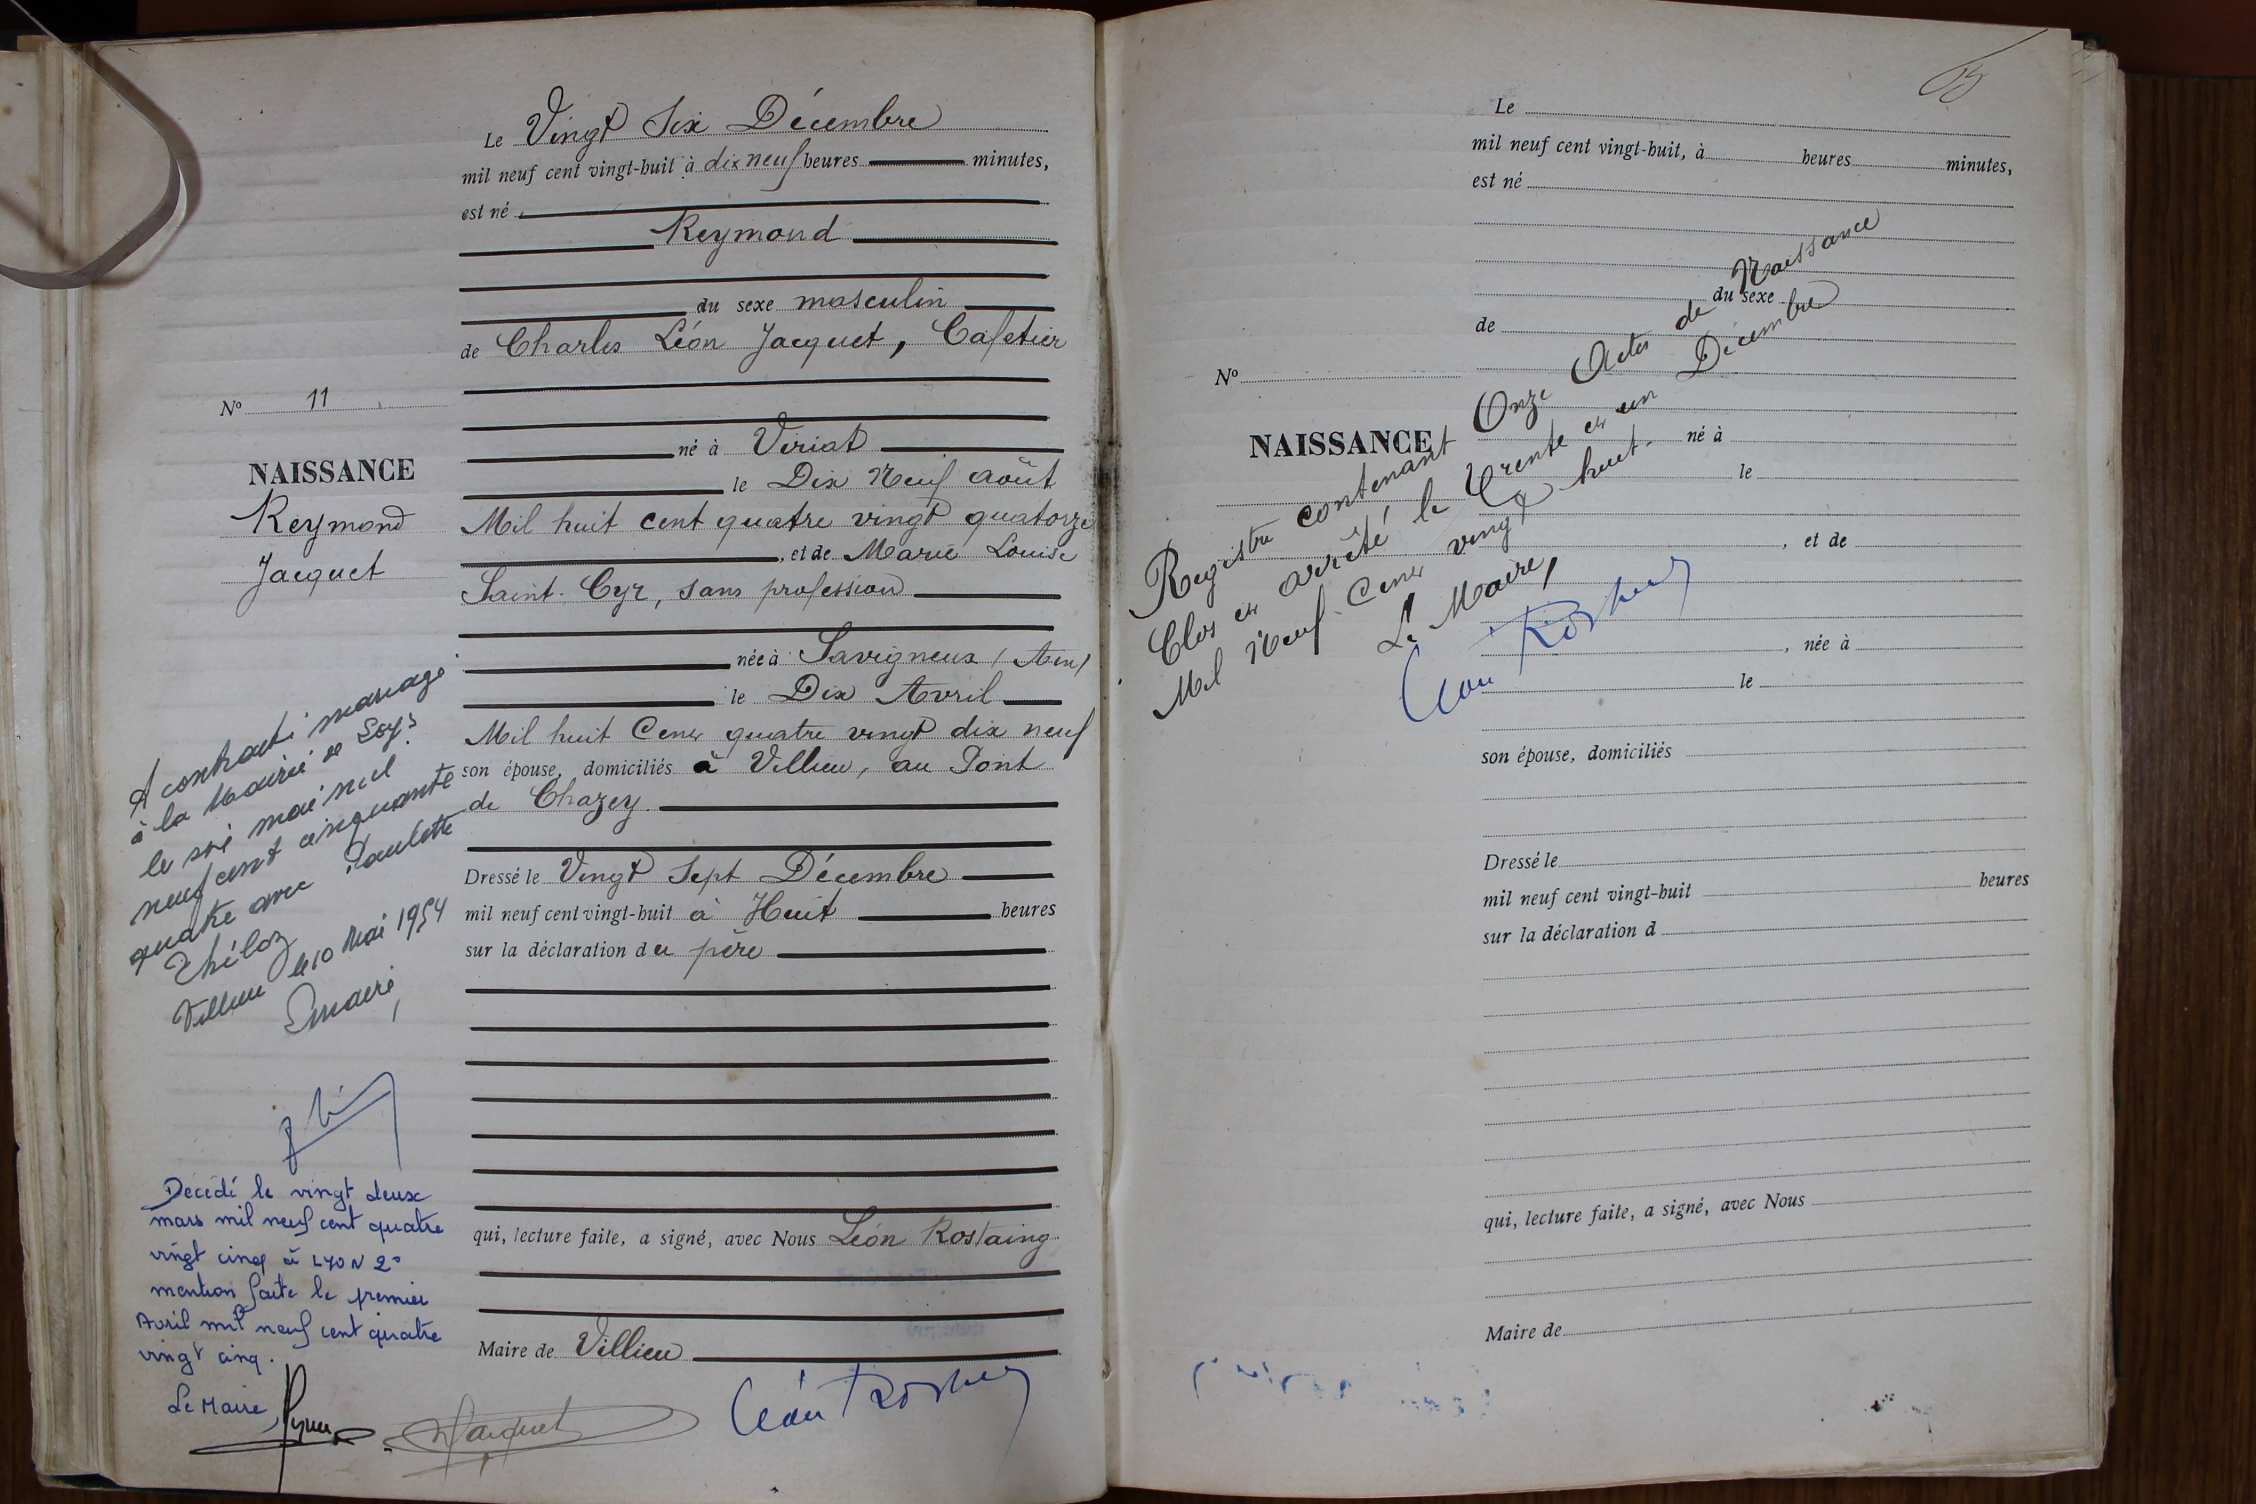 Le Vingt Six Décembre
mil neuf cent vingt-huit à dix neuf heures minutes,
est né
Reymond
du sexe masculin
de Charles Léon Jacquet, Cafetier
né à Viriat
le Dix Neuf Août
Mil huit cent quatre vingt quatorze
, et de Marie Louise
Saint-Cyr, sans profession
née à Savigneux (Ain)
le Dix Avril
Mil huit Cent quatre vingt dix neuf
son épouse, domiciliés à Villieu, au Pont
de Chazey
Dressé le Vingt Sept Décembre
mil neuf cent vingt-huit à Huit heures
sur la déclaration du père
qui, lecture faite, a signé, avec Nous Léon Rostaing
Maire de Villieu
Jacquet
Léon Rostaing
No 11
NAISSANCE
Reymond
Jacquet
A contracté mariage
à la Mairie de
le six mai mil
neuf cent cinquante
quatre avec Paulette
Théloz
Villieu le 10 Mai 1954
Le maire,
Décédé le vingt deux
mars mil neuf cent quatre
vingt cinq à LYON 2°
mention faite le premier
Avril mil neuf cent quatre
vingt cinq.
Le Maire,
Le
mil neuf cent vingt-huit, à heures minutes,
est né
du sexe
de
No
NAISSANCE
né à
le
, et de
, née à
le
son épouse, domiciliés
Dressé le
mil neuf cent vingt-huit heures
sur la déclaration d
qui, lecture faite, a signé, avec Nous
Maire de
Registre contenant Onze Actes de Naissance
Clos et arrêté le Trente et un Décembre
Mil Neuf Cent vingt huit.
Le Maire,
Léon Rostaing